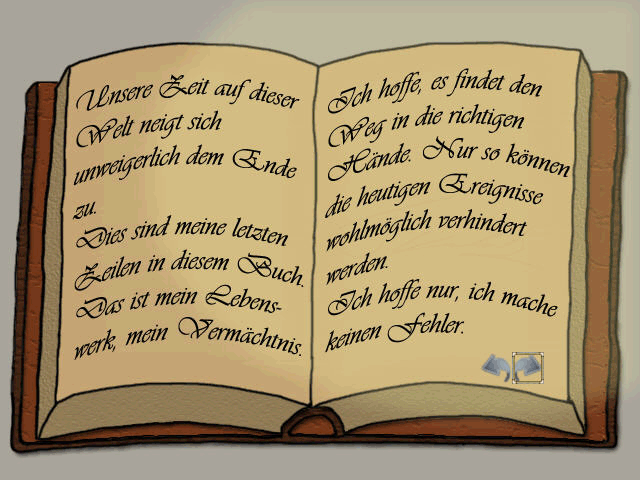 Unsere Zeit auf dieser
Welt neigt sich
unweigerlich dem Ende
zu.
Dies sind meine letzten
Zeilen in diesem Buch.
Das ist mein Lebens-
werk, mein Vermächtnis.
Ich hoffe, es findet den
Weg in die richtigen
Hände. Nur so können
die heutigen Ereignisse
wohlmöglich verhindert
werden.
Ich hoffe nur, ich mache
keinen Fehler.